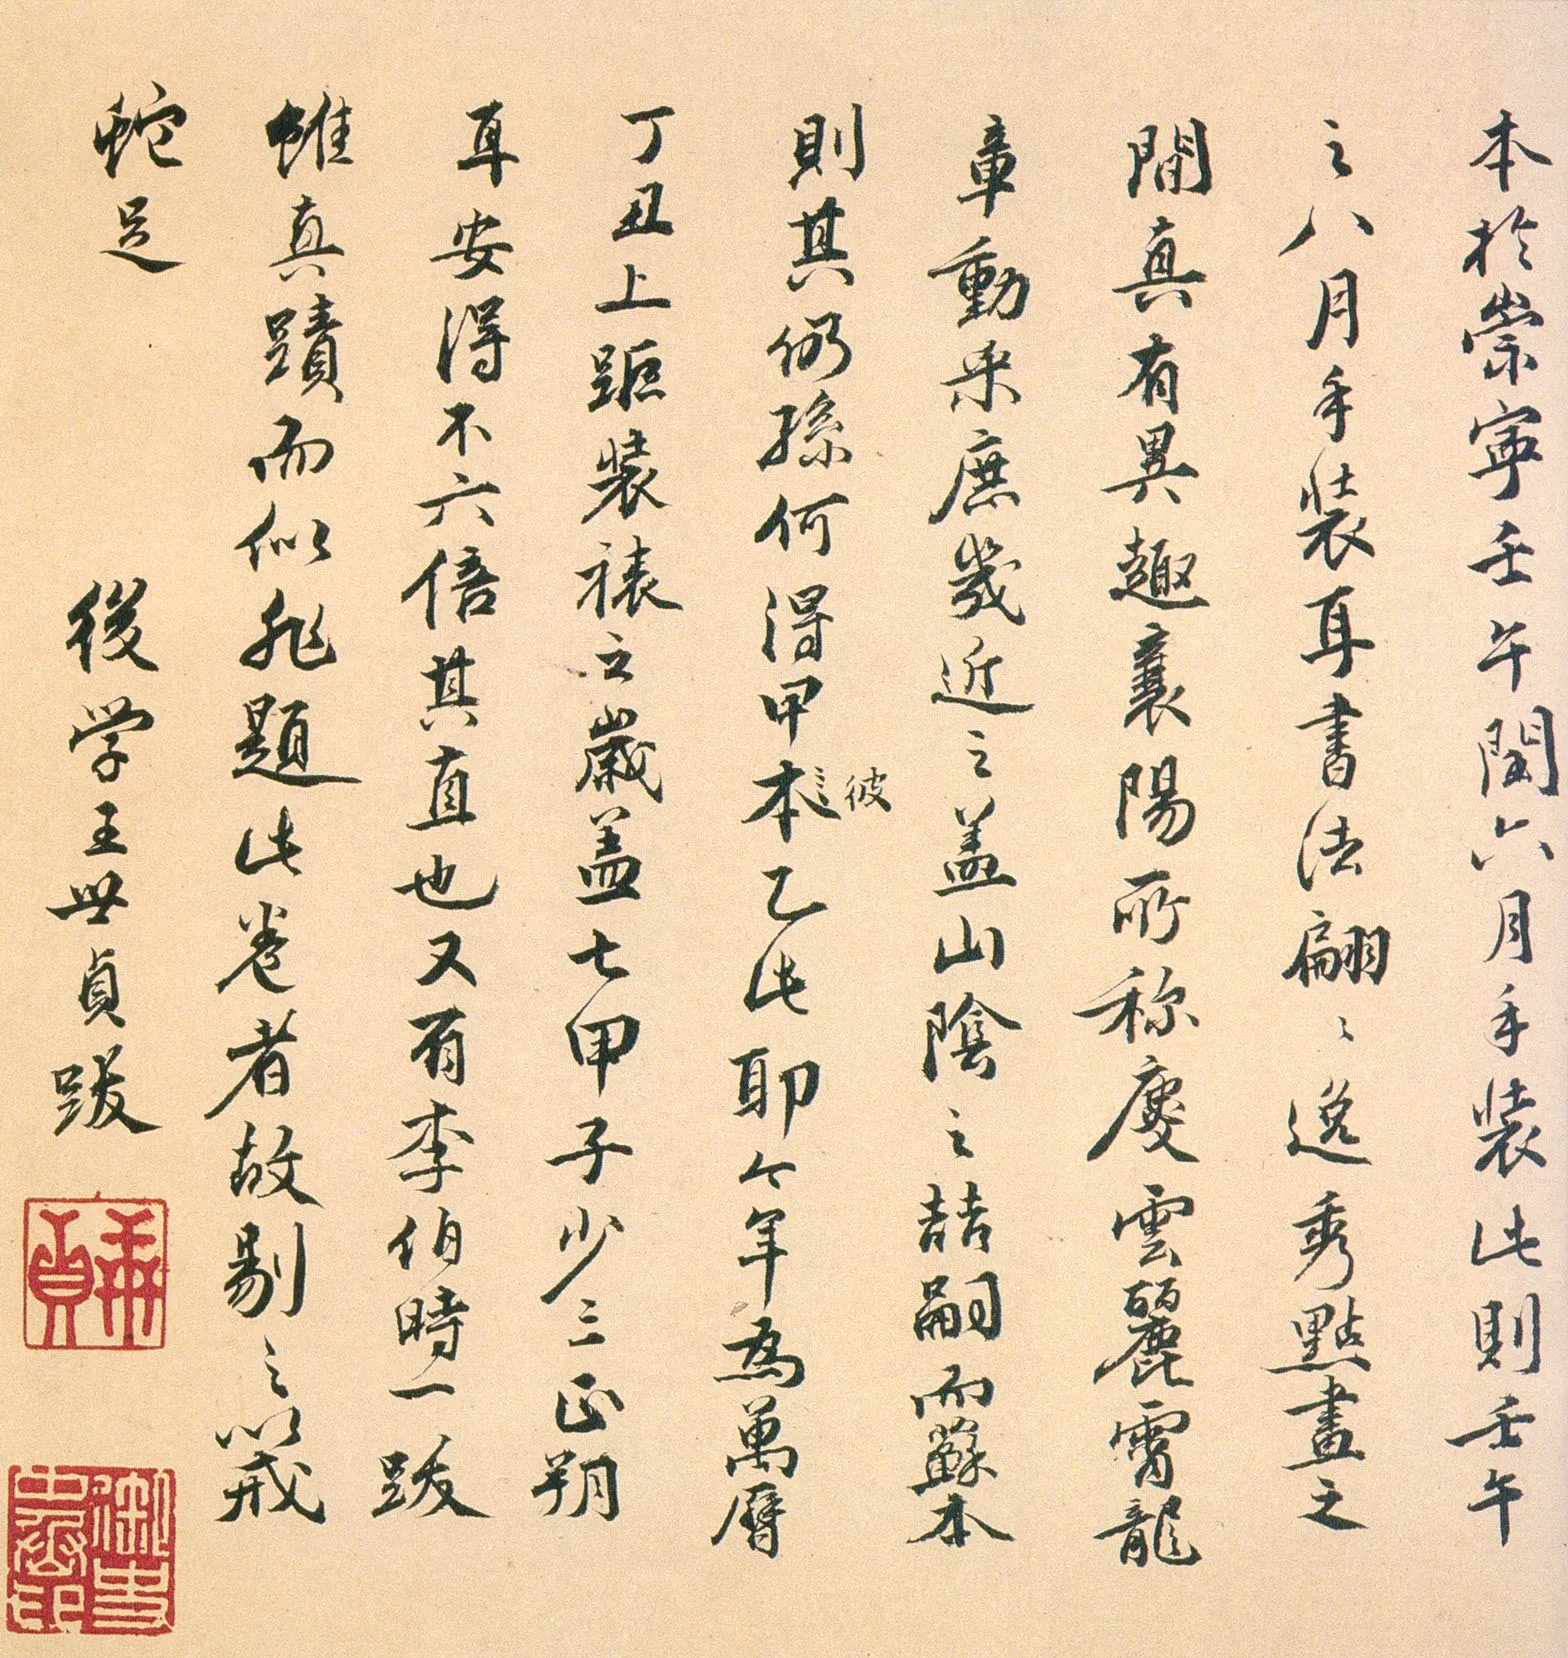 本於崇寧壬午閏六月手裝此則壬午
之八月手裝耳書法翩〻逸秀點畫之
間真有異趣襄陽所称慶雲麗霄龍
章動采庶幾近之盖山陰之喆嗣而蘇本
則其仍孫何得甲本彼乙此耶今年為萬曆
丁丑上距裝裱之歲盖七甲子少三正朔
耳安得不六倍其直也又有李伯時一跋
雖真蹟而似非題此卷者故剔之以戒
蛇足
後学王世貞跋
世貞